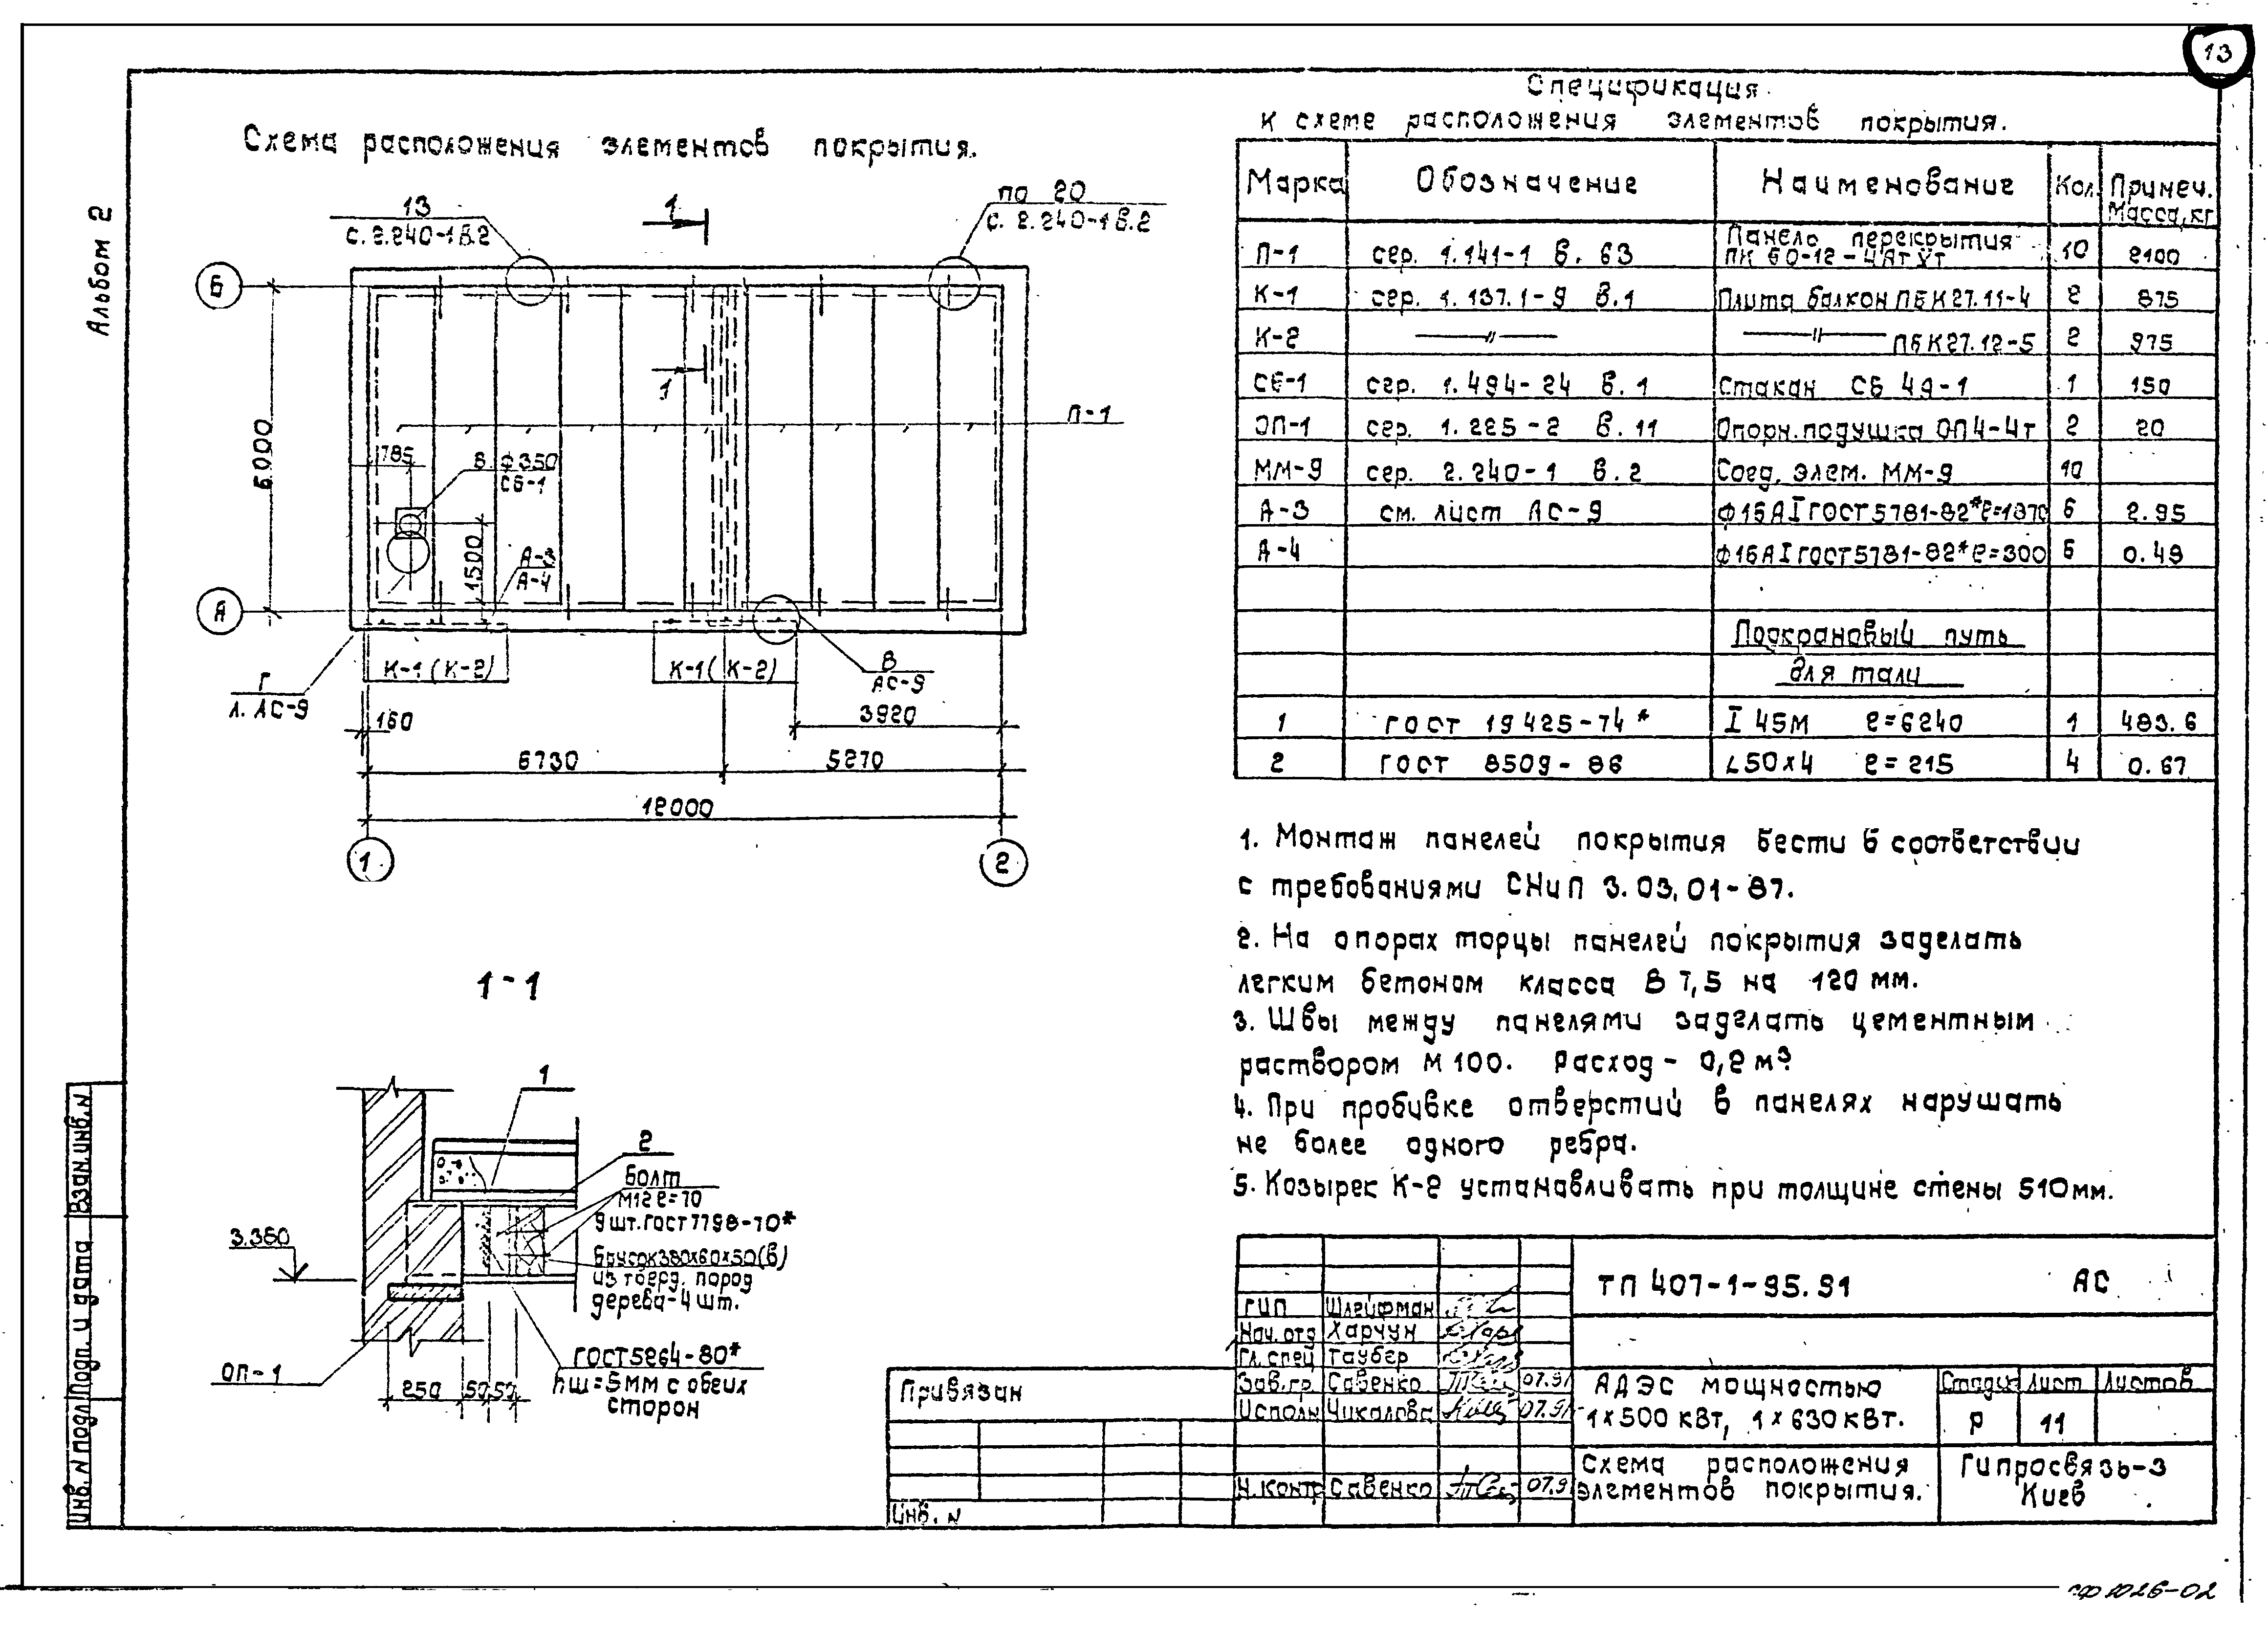 13
Альбом 2
Схема расположения элементов покрытия.
13
с. 2.240-1 в.2
1
по 20
с. 2.240-1 в.2
Б
6000
А
1
П-1
785
В. ф350
СБ-1
1500
А-3
А-4
К-1 (К-2)
К-1 (К-2)
В
АС-9
Г
л. АС-9
160
3920
6730
5270
12000
1
2
1-1
1
2
Болт
М12 ℓ=70
9 шт. ГОСТ 7798-70*
Брусок 380х60х50(в)
из тверд. пород
дерева-4 шт.
3.380
ГОСТ 5264-80*
hш=5мм с обеих
сторон
ОП-1
250
50
50
Спецификация
к схеме расположения элементов покрытия.
Марка Обозначение Наименование Кол. Примеч. Масса, кг
П-1 сер. 1.141-1 в. 63 Панель перекрытия ПК 60-12-4АтVт 10 2100
К-1 сер. 1.137.1-9 в.1 Плита балкон ПБК27.11-4 2 875
К-2 —〃— —〃— ПБК27.12-5 2 975
СБ-1 сер. 1.494-24 в.1 Стакан СБ 4д-1 1 150
ОП-1 сер. 1.225-2 в.11 Опорн. подушка ОП4-4т 2 20
ММ-9 сер. 2.240-1 в.2 Соед. элем. ММ-9 10
А-3 см. лист АС-9 ф16АI ГОСТ 5781-82* ℓ=1870 6 2.95
А-4 ф16АI ГОСТ 5781-82* ℓ=300 6 0.49
Подкрановый путь
для тали
1 ГОСТ 19425-74* I 45М ℓ=6240 1 483.6
2 ГОСТ 8509-86 ∟50х4 ℓ=215 4 0.67
1. Монтаж панелей покрытия вести в соответствии
с требованиями СНиП 3.03.01-87.
2. На опорах торцы панелей покрытия заделать
легким бетоном класса В 7,5 на 120 мм.
3. Швы между панелями заделать цементным
раствором М 100. Расход - 0,2 м³
4. При пробивке отверстий в панелях нарушать
не более одного ребра.
5. Козырек К-2 устанавливать при толщине стены 510мм.
ТП 407-1-95.91 АС
ГИП Шлейфман
Нач. отд Харчун
Гл. спец Таубер
Зав. гр. Савенко 07.91
Исполн Чикалова 07.91
Н. контр Савенко 07.91
АДЭС мощностью
1х500 кВт, 1х630 кВт.
Стадия Лист Листов
Р 11
Схема расположения
элементов покрытия.
Гипросвязь-3
Киев
Привязан
Инв. N
Взан. инв. N
Подп. и дата
Инв. N подл